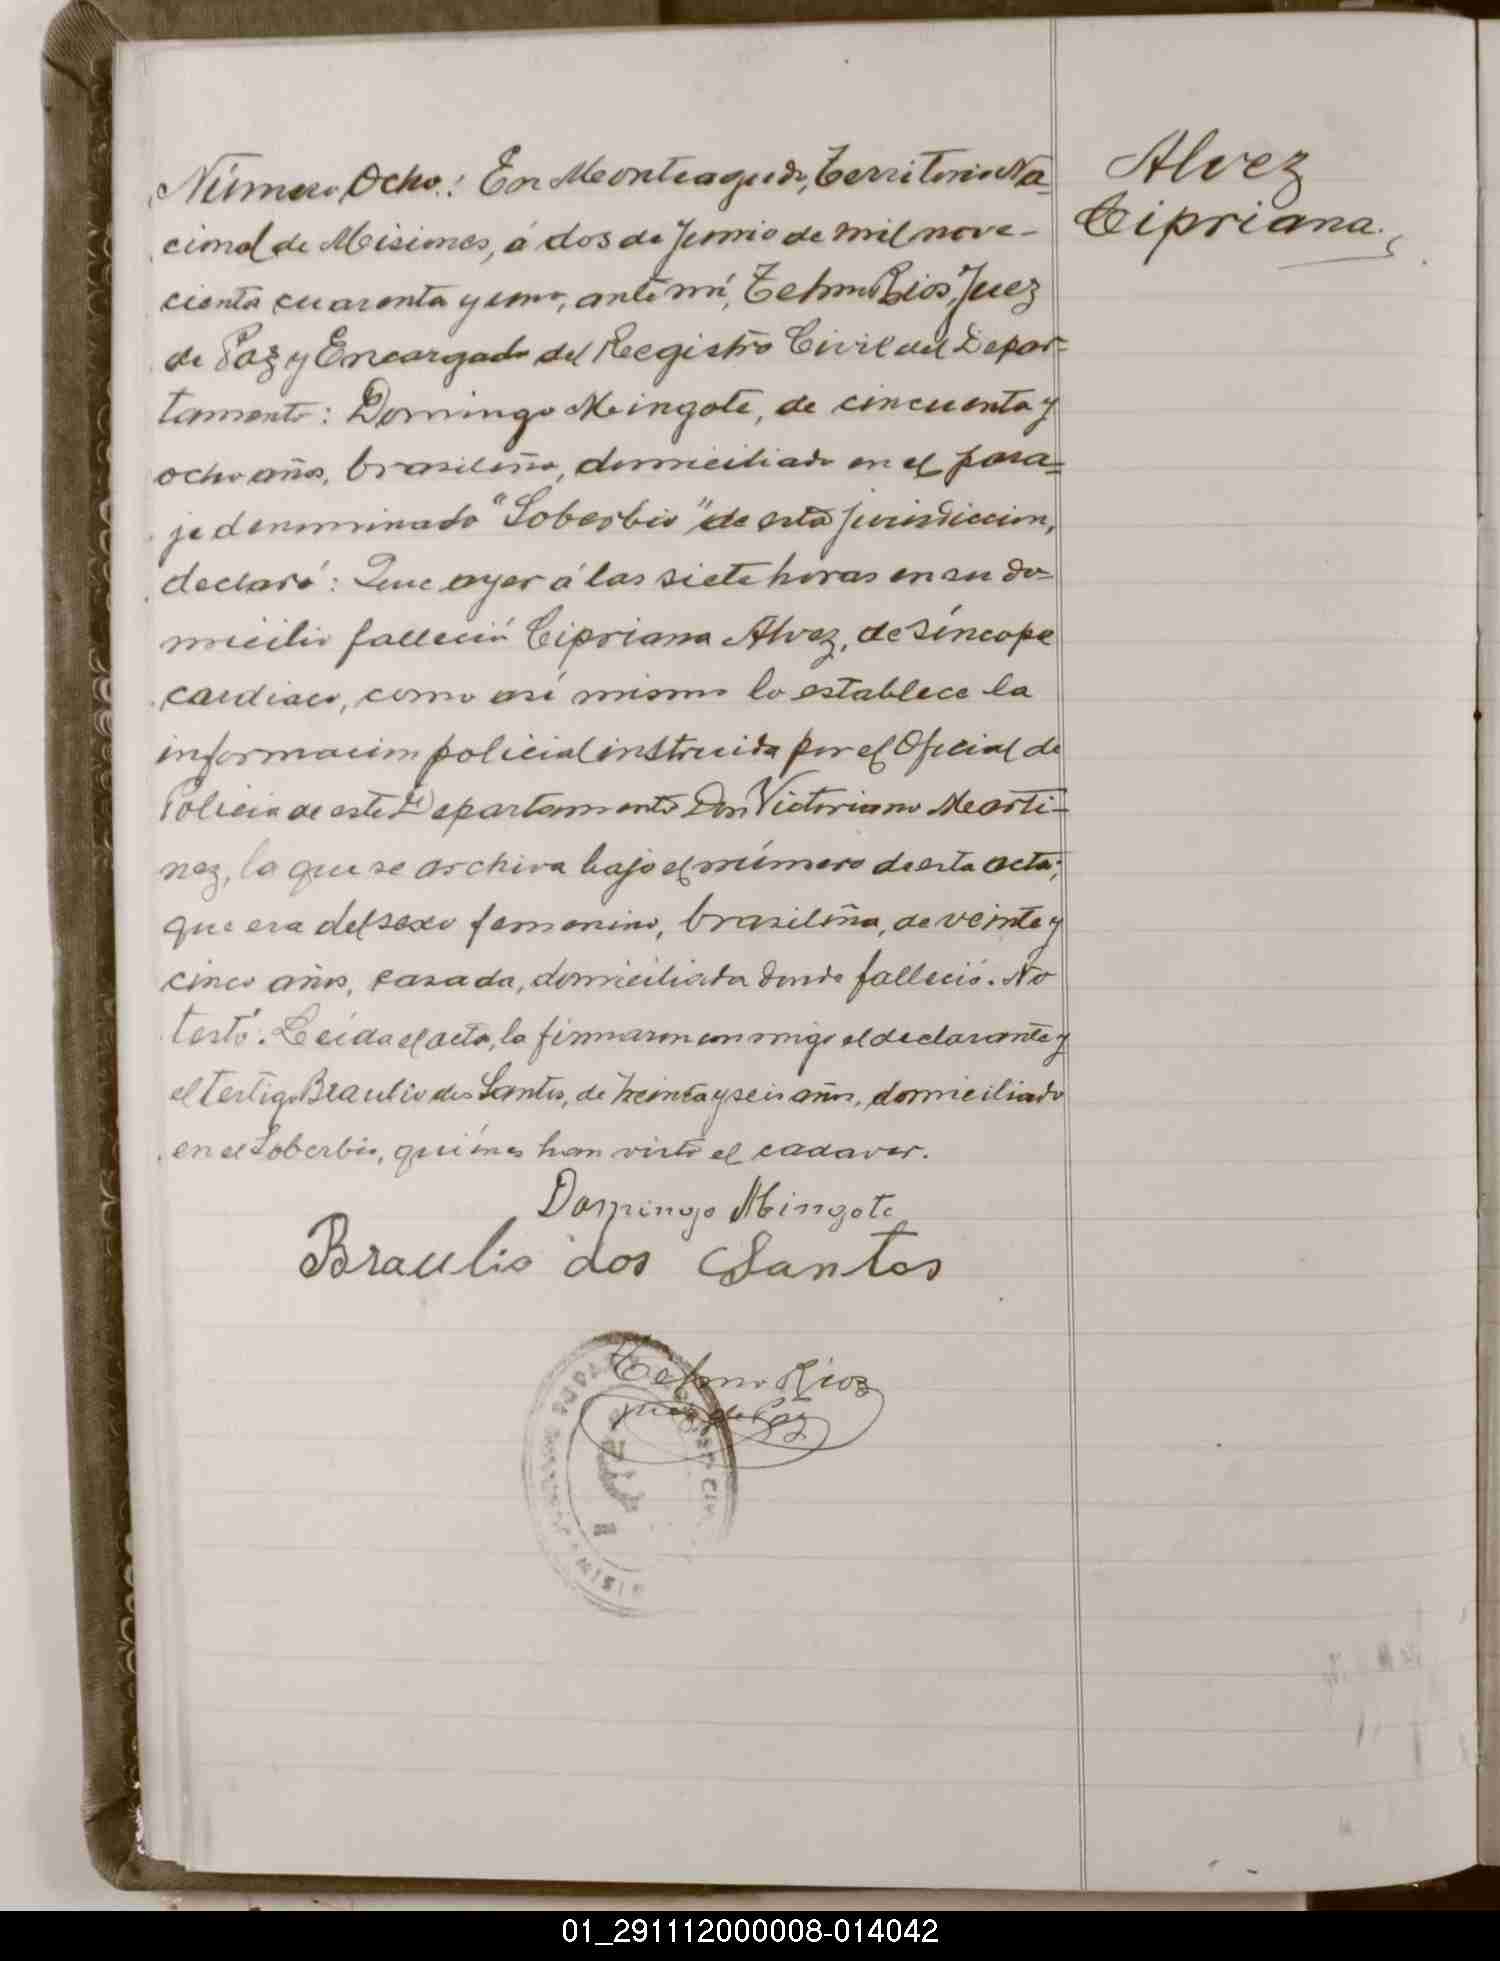 Alvez
Cipriana.
Número Ocho.: En Monteagudo, Territorio Na=
cional de Misiones, á dos de Junio de mil nove-
cienta cuarenta y uno, ante mí, Telmo Rios, Juez
de Paz y Encargado del Registro Civil del Depar=
tamento: Domingo Mingote, de cincuenta y
ocho años, brasileño, domiciliado en el para=
je denominado "Soberbio" de esta jurisdiccion,
declaró: Que ayer á las siete horas en su do=
micilio falleció Cipriana Alvez, de síncope
cardiaco, como así mismo lo establece la
informacion policial instruida por el Oficial de
Policia de este Departamento Don Victoriano Marti-
nez, la que se archiva bajo el número de esta acta;
que era del sexo femenino, brasileña, de veinte y
cinco años, casada, domiciliada donde falleció. No
testó. Leida el acta, la firmaron conmigo el declarante y
el testigo Braulio dos Santos, de treinta y seis años, domiciliado
en el Soberbio, quiénes han visto el cadaver.
Domingo Mingote
Braulio dos Santos
Telmo Rios
Juez de Paz
01_291112000008-014042